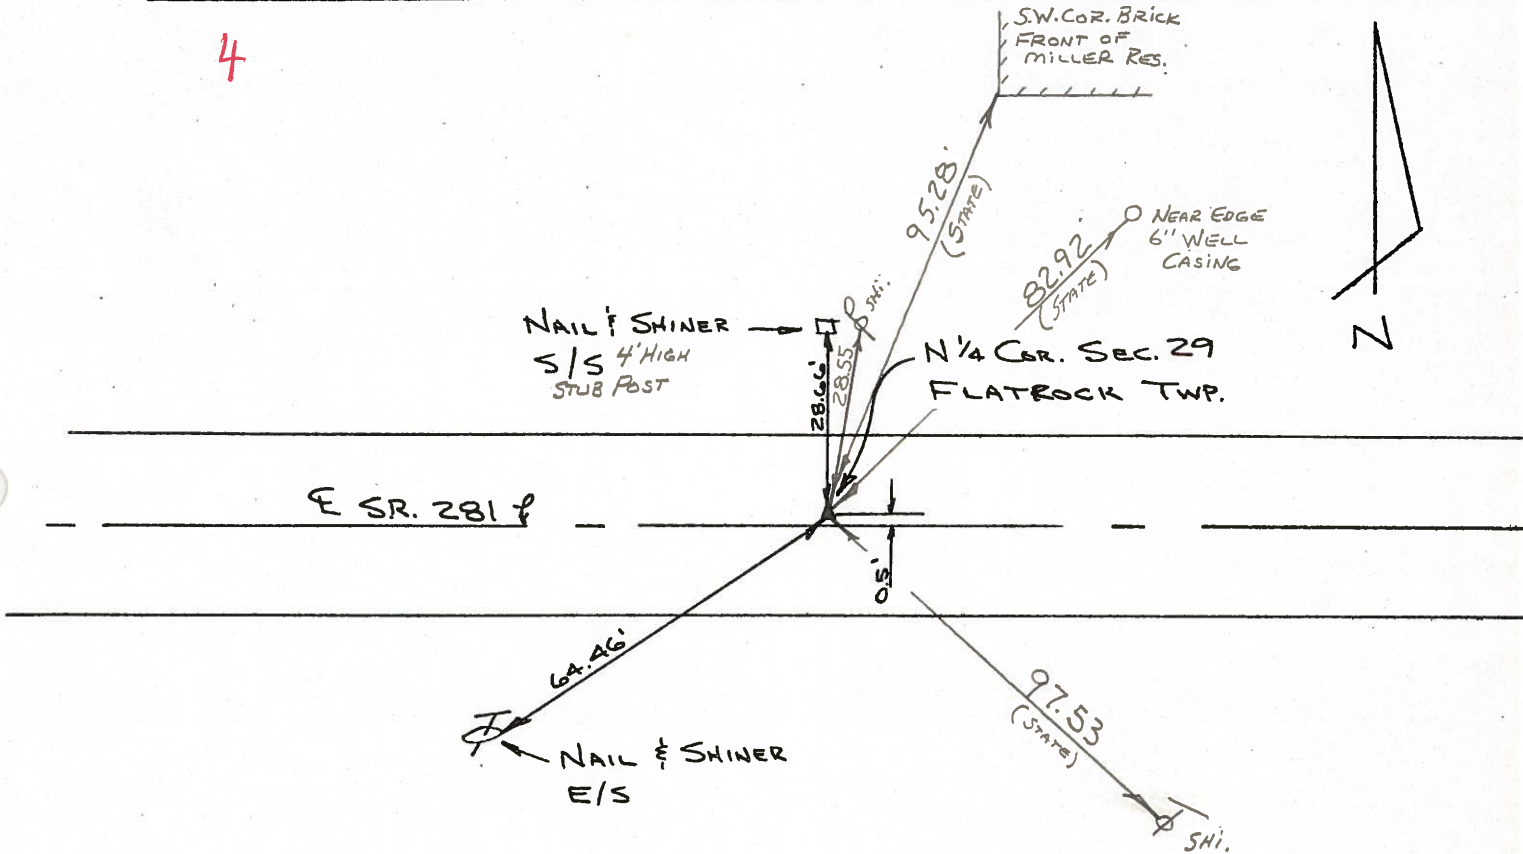 4
S.W. COR. BRICK
FRONT OF
MILLER RES.
95.28'
(STATE)
NEAR EDGE
6" WELL
CASING
82.92
(STATE)
SHI.
NAIL & SHINER
S/S 4' HIGH
STUB POST
28.66'
28.55
N 1/4 COR. SEC. 29
FLATROCK TWP.
N
℄ SR. 281
0.5'
64.46'
NAIL & SHINER
E/S
97.53
(STATE)
SHI.